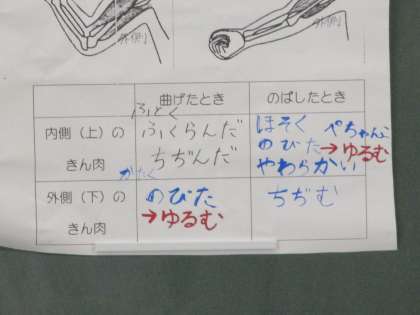 外側
外側
曲げたとき
のばしたとき
内側（上）の
きん肉
ふとく
ふくらんだ
ちぢんだ
かたく
ほそく
のびた
やわらかい
ぺちゃんこ
→ゆるむ
外側（下）の
きん肉
のびた
→ゆるむ
ちぢむ